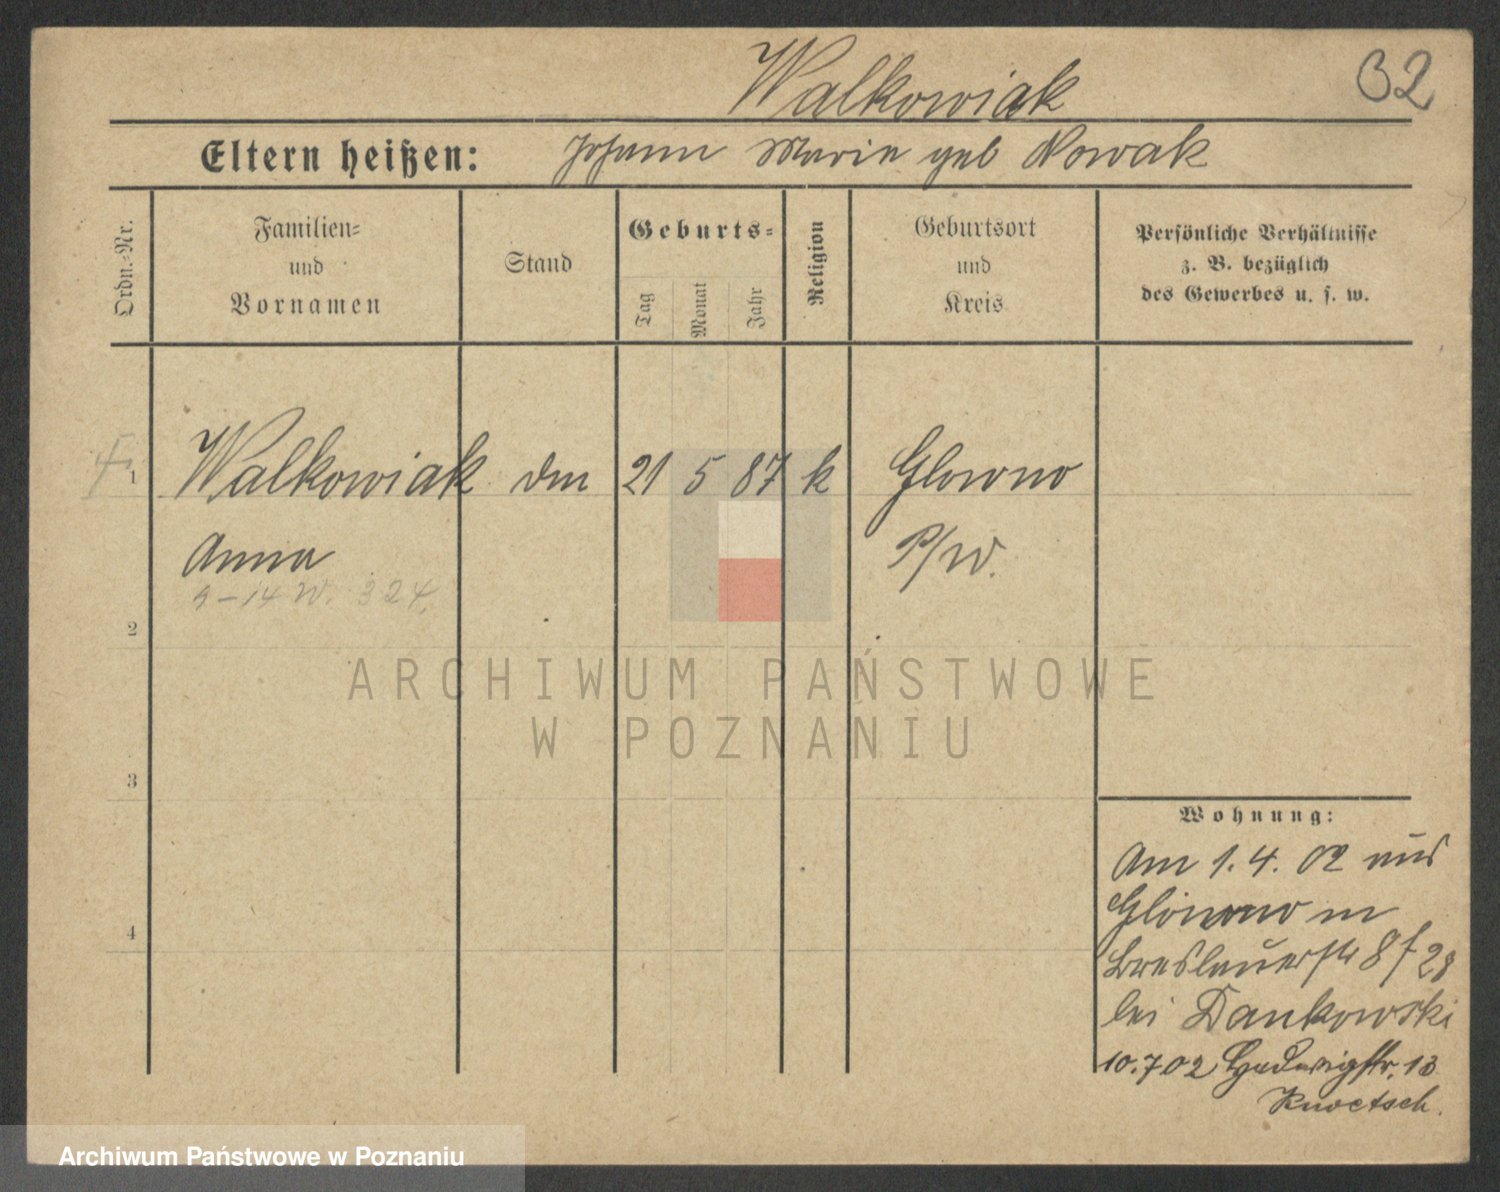 Walkowiak
32
Eltern heißen: Johann Marie geb Nowak
Ordn.-Nr.
Familien-
und
Vornamen
Stand
Geburts-
Tag
Monat
Jahr
Religion
Geburtsort
und
Kreis
Persönliche Verhältnisse
z. B. bezüglich
des Gewerbes u. s. w.
1 Walkowiak 21 5 87 k Glowno
Anna P/W.
9-14 W. 324.
2
ARCHIWUM PAŃSTWOWE
W POZNANIU
3
4
Wohnung:
Am 1.4. 02 aus
Glowno in
Breslauerstr 8/28
bei Dankowski
10.7 02 13
Archiwum Państwowe w Poznaniu